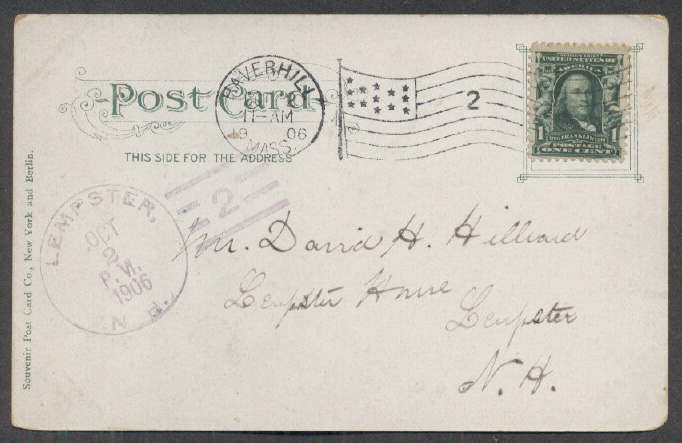 Post Card
THIS SIDE FOR THE ADDRESS
HAVERHILL
11-AM
06
MASS.
2
SERIES 1902
UNITED STATES OF
AMERICA
1
POSTAGE
ONE CENT
LEMPSTER,
OCT
2
P.M.
1906
N.H.
2
Mr. David H. Hilliard
Lempster House
Lempster
N. H.
Souvenir Post Card Co., New York and Berlin.